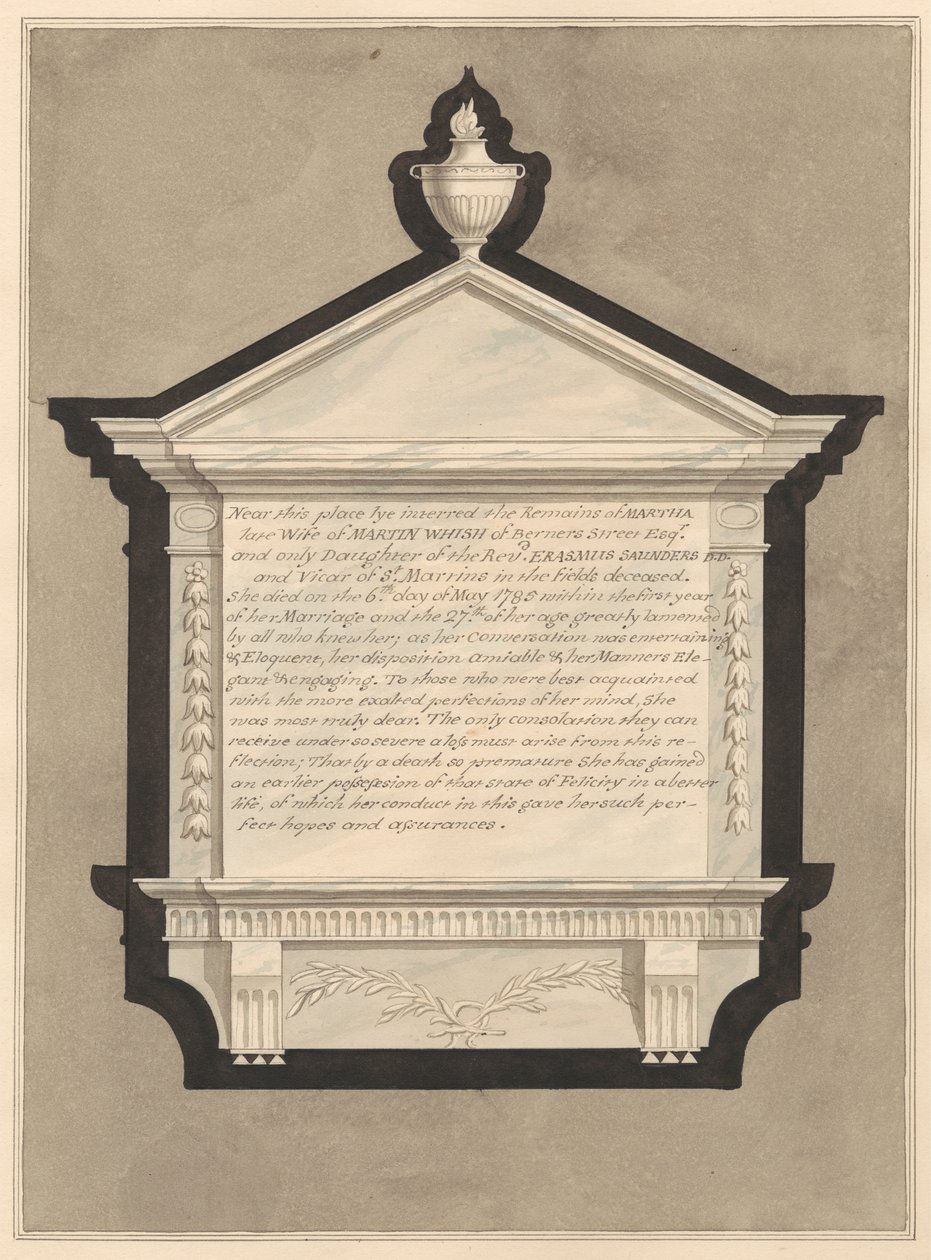 Near this place lye interred the Remains of MARTHA
late Wife of MARTIN WHISH of Berners Street Esqr.
and only Daughter of the Revd. ERASMUS SAUNDERS D.D.
and Vicar of St. Martins in the fields deceased.
She died on the 6th day of May 1785 within the first year
of her Marriage and the 27th of her age greatly lamented
by all who knew her; as her Conversation was entertaining
& Eloquent, her disposition amiable & her Manners Ele-
gant & engaging. To those who were best acquainted
with the more exalted perfections of her mind, She
was most truly dear. The only consolation they can
receive under so severe a loſs must arise from this re-
flection; That by a death so premature She has gained
an earlier poſseſsion of that state of Felicity in a better
life, of which her conduct in this gave her such per-
fect hopes and aſsurances.